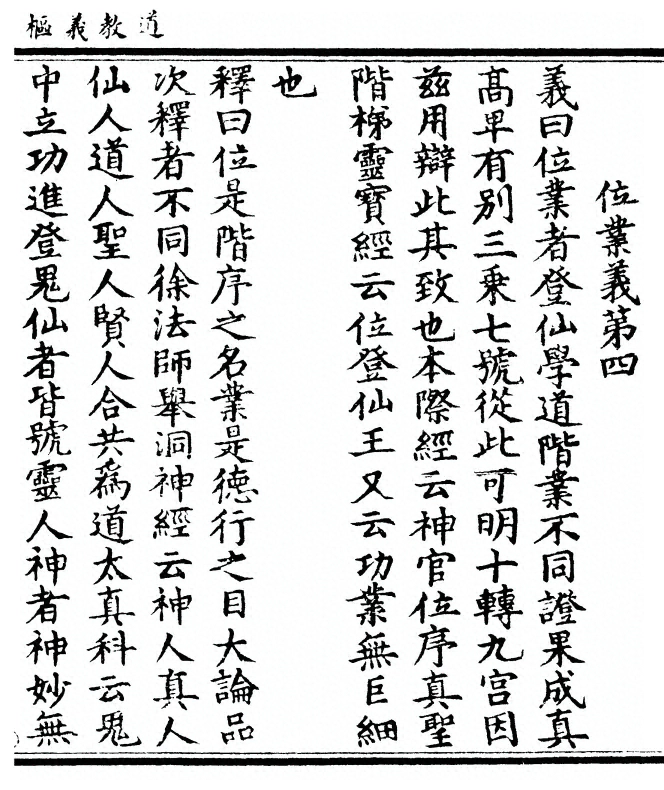 道教義樞
位業義第四
義曰位業者登仙學道階業不同證果成真
髙卑有别三乗七號從此可明十轉九宫因
兹用辯此其致也本際經云神官位序真聖
階梯靈寳經云位登仙王又云功業無巨細
也
釋曰位是階序之名業是德行之目大論品
次釋者不同徐法師舉洞神經云神人真人
仙人道人聖人賢人合共為道太真科云鬼
中立功進登鬼仙者皆號靈人神者神妙無